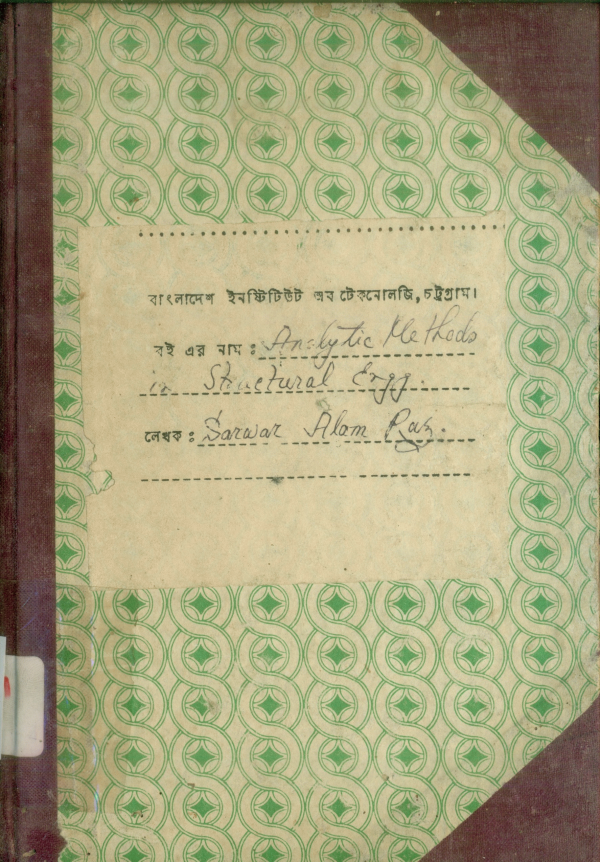 বাংলাদেশ ইনষ্টিটিউট অব টেকনোলজি, চট্টগ্রাম।
বই এর নাম : Analytic Methods
in Structural Engg.
লেখক : Sarwar Alam Raz.